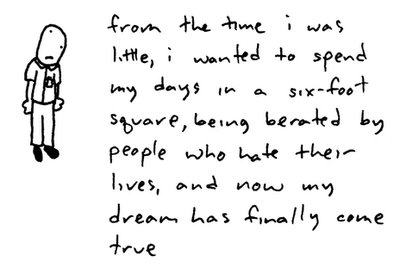 from the time i was
little, i wanted to spend
my days in a six-foot
square, being berated by
people who hate their
lives, and now my
dream has finally come
true